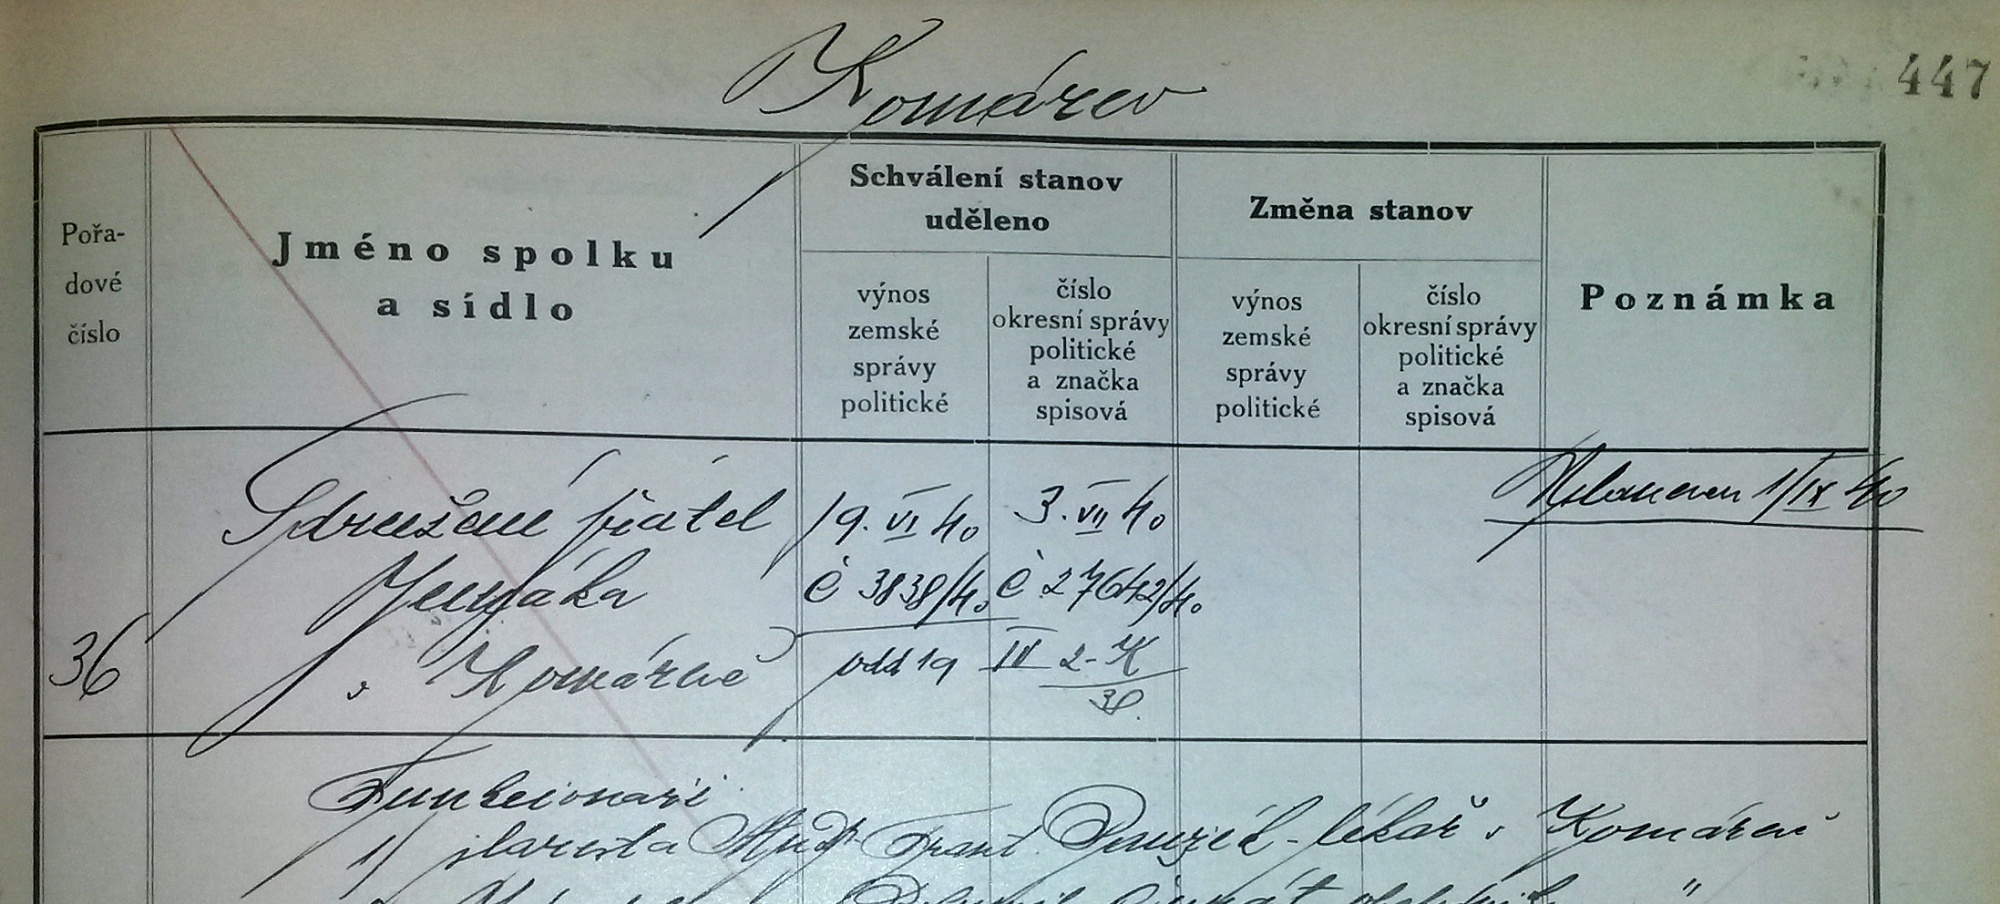 Komárov
447
Pořa-
dové
číslo
Jméno spolku
a sídlo
Schválení stanov
uděleno
výnos
zemské
správy
politické
číslo
okresní správy
politické
a značka
spisová
Změna stanov
výnos
zemské
správy
politické
číslo
okresní správy
politické
a značka
spisová
Poznámka
36
Sdružení přátel
v Komárově
19. VI 40
č 3838/40
odd 19
3. VII 40
č 27642/40
IV 2-K
38
1/IX 40
Funkcionáři
1) starosta MUDr Frant. lékař v Komárově
"